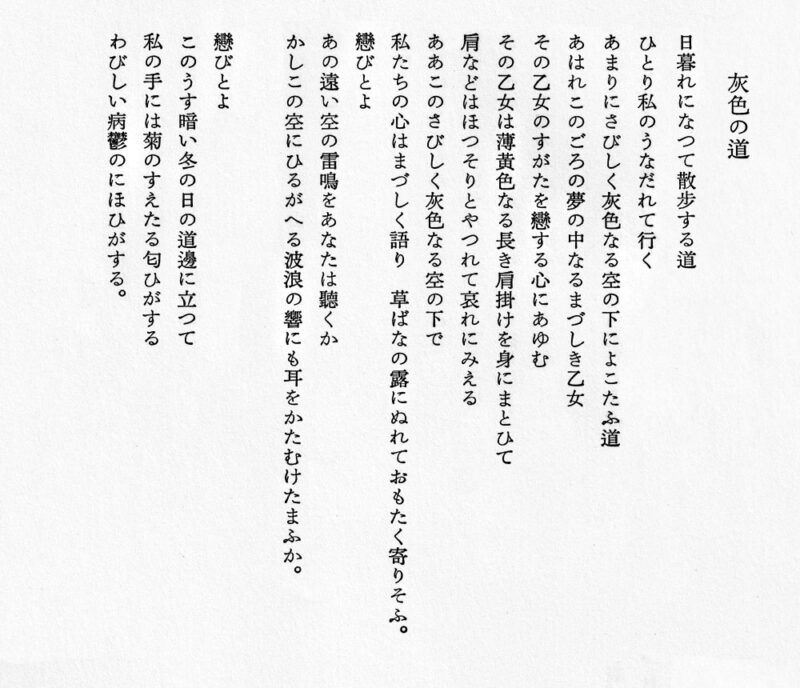 灰色の道
日暮れになつて散步する道
ひとり私のうなだれて行く
あまりにさびしく灰色なる空の下によこたふ道
あはれこのごろの夢の中なるまづしき乙女
その乙女のすがたを戀する心にあゆむ
その乙女は薄黃色なる長き肩掛けを身にまとひて
肩などはほつそりとやつれて哀れにみえる
ああこのさびしく灰色なる空の下で
私たちの心はまづしく語り　草ばなの露にぬれておもたく寄りそふ。
戀びとよ
あの遠い空の雷鳴をあなたは聽くか
かしこの空にひるがへる波浪の響にも耳をかたむけたまふか。
戀びとよ
このうす暗い冬の日の道邊に立つて
私の手には菊のすえたる匂ひがする
わびしい病鬱のにほひがする。